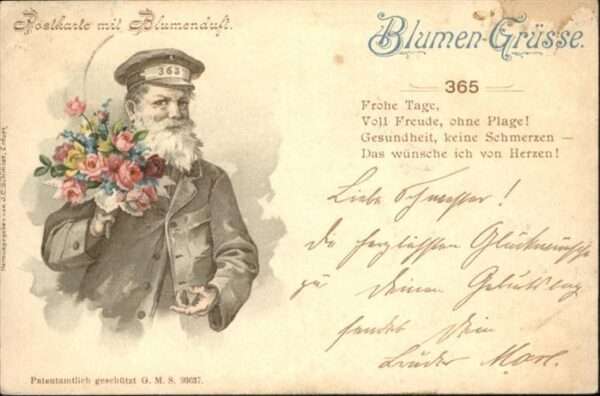 Postkarte mit Blumenduft.
Blumen-Grüsse.
365
365
Frohe Tage,
Voll Freude, ohne Plage!
Gesundheit, keine Schmerzen —
Das wünsche ich von Herzen!
Liebe Schwester!
Die herzlichsten Glückwünsche
zu Deinem Geburtstag
sendet Dein
Bruder
Patentamtlich geschützt G. M. S.